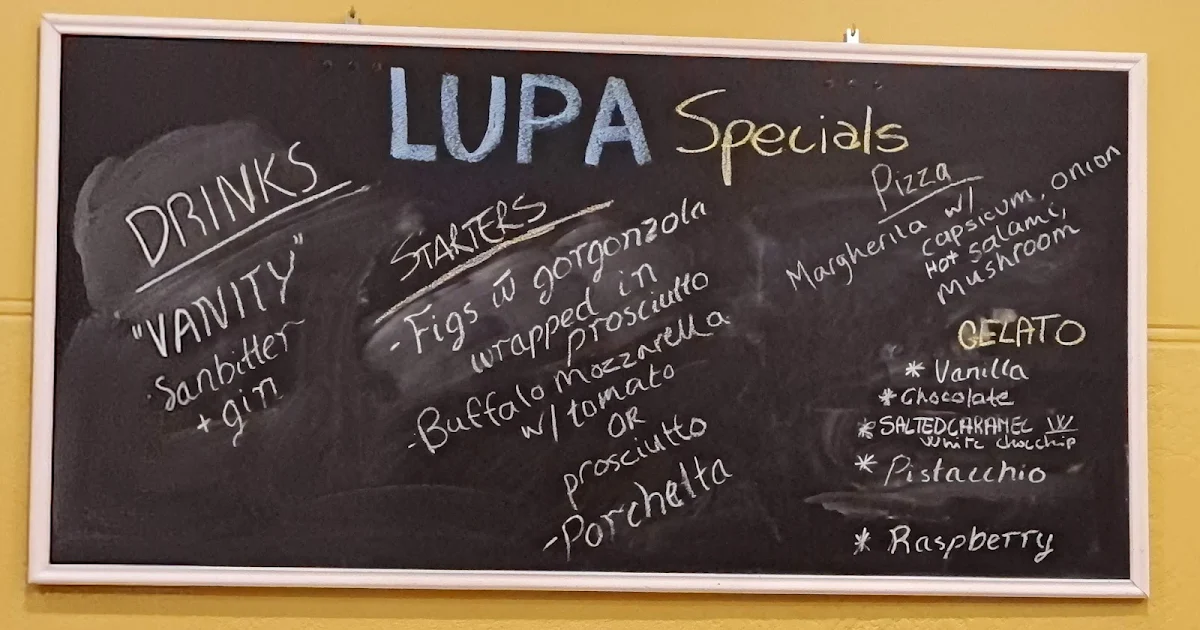 LUPA Specials
DRINKS
"VANITY"
Sanbitter
+ gin
STARTERS
- Figs w̄ gorgonzola
wrapped in
prosciutto
- Buffalo mozzarella
w/ tomato
OR
prosciutto
- Porchetta
Pizza
Margherita w/
capsicum, onion
Hot Salami,
Mushroom
GELATO
* Vanilla
* Chocolate
* SALTED CARAMEL W/
White chocchip
* Pistacchio
* Raspberry